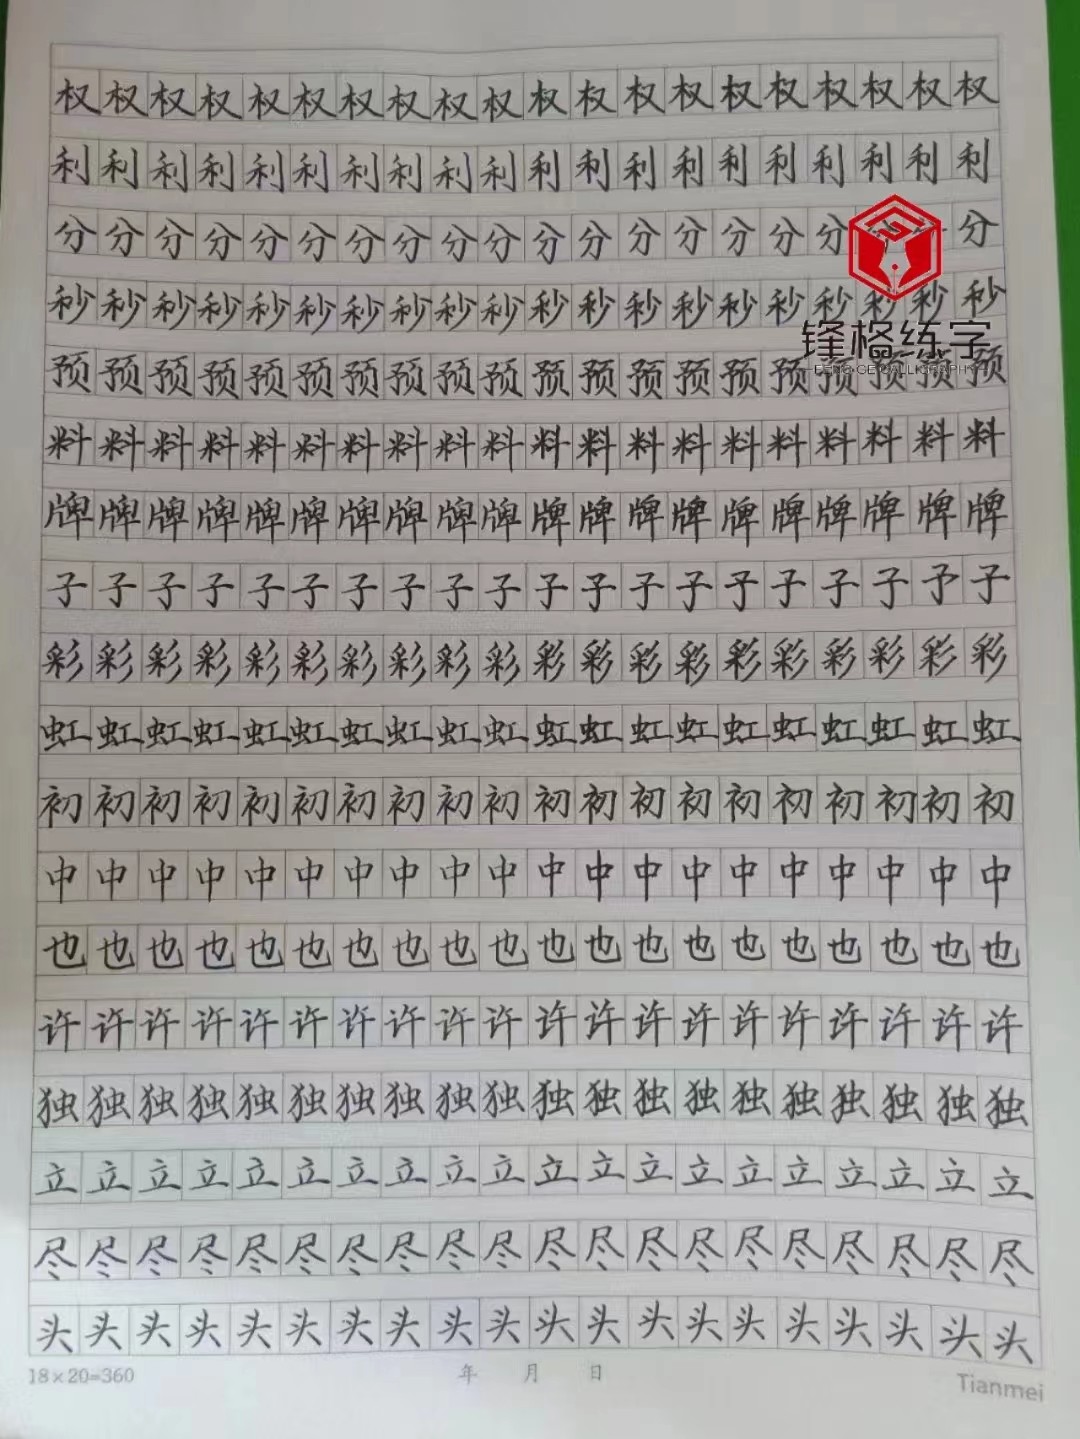 权权权权权权权权权权权权权权权权权权权权
利利利利利利利利利利利利利利利利利利利利
分分分分分分分分分分分分分分分分分分分分
秒秒秒秒秒秒秒秒秒秒秒秒秒秒秒秒秒秒秒秒
锋格练字
FENG GE CALLIGRAPHY
预预预预预预预预预预预预预预预预预预预预
料料料料料料料料料料料料料料料料料料料料
牌牌牌牌牌牌牌牌牌牌牌牌牌牌牌牌牌牌牌牌
子子子子子子子子子子子子子子子子子子子子
彩彩彩彩彩彩彩彩彩彩彩彩彩彩彩彩彩彩彩彩
虹虹虹虹虹虹虹虹虹虹虹虹虹虹虹虹虹虹虹虹
初初初初初初初初初初初初初初初初初初初初
中中中中中中中中中中中中中中中中中中中中
也也也也也也也也也也也也也也也也也也也也
许许许许许许许许许许许许许许许许许许许许
独独独独独独独独独独独独独独独独独独独独
立立立立立立立立立立立立立立立立立立立立
尽尽尽尽尽尽尽尽尽尽尽尽尽尽尽尽尽尽尽尽
头头头头头头头头头头头头头头头头头头头头
18×20=360 年 月 日 Tianmei